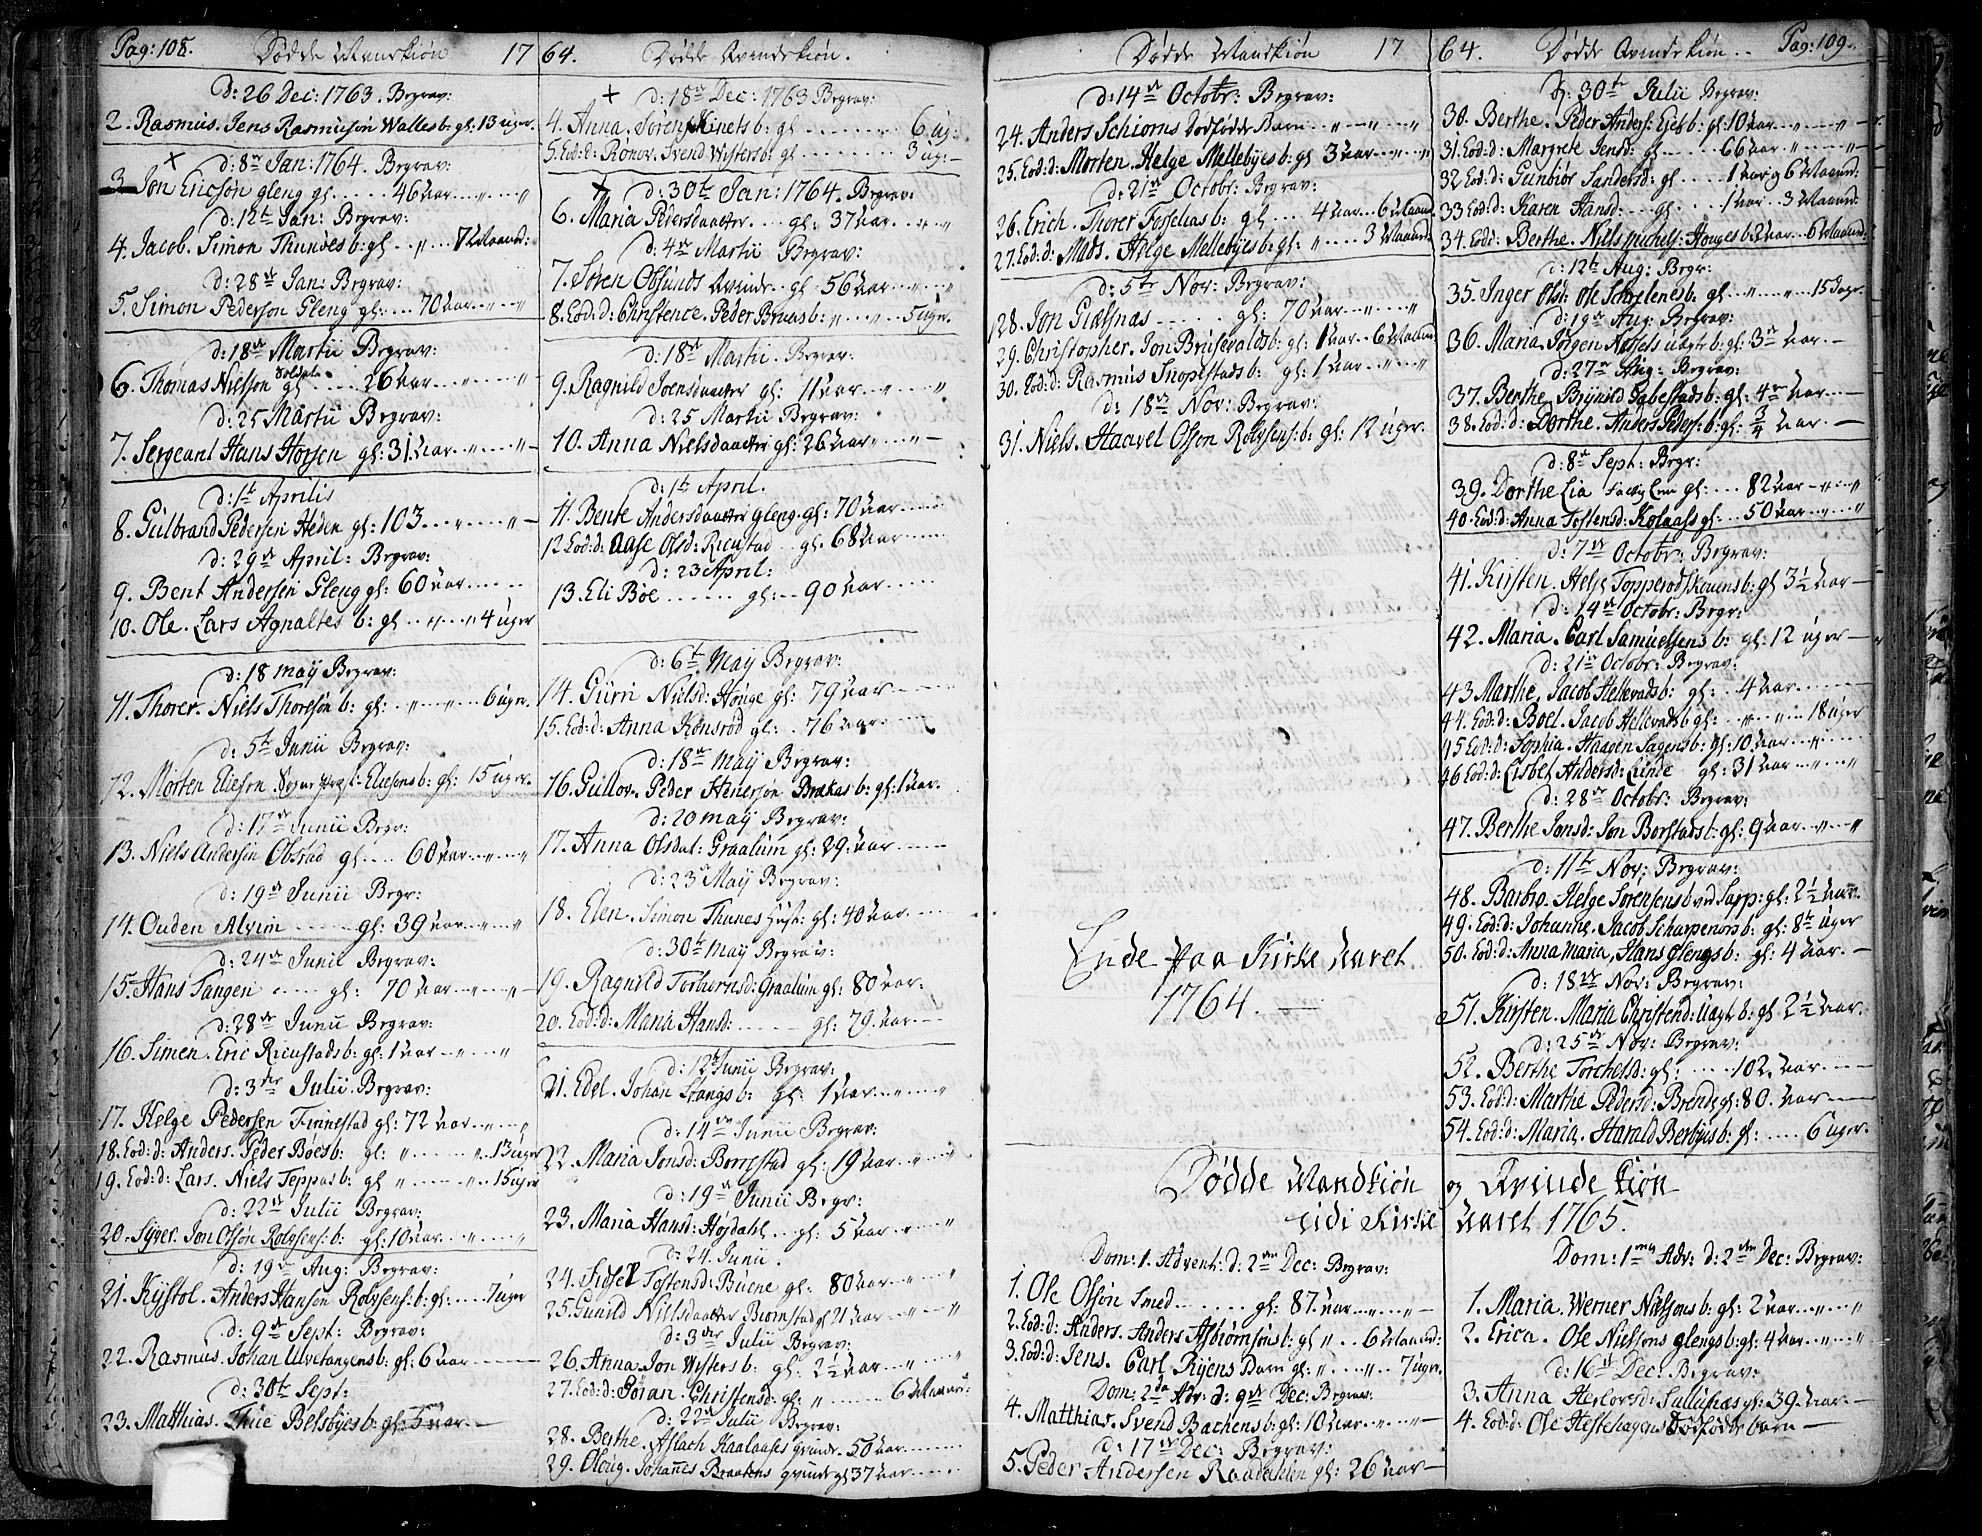 Pag: 108. Dødde Mandkiøn 17
d: 26 Dec: 1763. Begrav:
2. Rasmus. Jens Rasmusøn Walles b: gl: 13 uger
d: 8de Jan: 1764. Begrav:
3 Jon Ericsøn gleng gl. 46 Aar
d: 12te Jan: Begrav:
4. Jacob. Simon Thunøes b: gl 7 Maand:
d: 28de Jan: Begrav:
5. Simon Pederson Gleng gl: 70 Aar
d: 18de Martii Begrav:
6. Thomas Nielson Soldat gl 26 Aar
d: 25 Martii Begrav:
7. Sergeant Hans Horsen gl: 31 Aar
d: 1te Aprilis
8. Gulbrand Pedersen Heden gl: 103
d: 29de April: Begrav:
9. Bent Andersen Gleng gl: 60 Aar
10. Ole. Lars Agnaltes b: gl 4 uger
d: 18 May Begrav:
11. Thorer. Niels Thoresøn b: gl: 6 uger.
d: 5te Junii Begrav:
12. Morten Eliesen Eliesens b: gl: 15 uger.
d: 17de Junii Begr:
13. Niels Andersen Obstad gl: 60 Aar
d: 19de Junii Begr:
14. Ouden Alvim gl: 39 Aar
d: 24de Junii Begrav:
15. Hans Tangen gl: 70 Aar
d: 28de Junii Begrav:
16. Simen. Eric Ricustads b: gl: 1 Aar
d: 3die Julii Begrav:
17. Helge Pedersen Finnestad gl: 72 Aar
18. Eod: d: Anders. Peder Bøes b: gl: 13 uger
19. Eod: d: Lars. Niels Teppas b: gl 15 uger
d: 22de Julii Begrav:
20. Syver. Jon Olsøn Rolvsens: b: gl: 10 Aar
d: 19de Aug: Begrav:
21. Kystol. Anders Hansen Rolvsens: b: gl: 7 uger
d: 9de Sept: Begrav:
22. Rasmus. Johan Ulvetangens b: gl: 6 Aar
d: 30te Sept:
23. Matthias. Thue Belsbyes b: gl: 5 Aar
64. Dødde Qvindekiøn.
d: 18de Dec: 1763 Begrav:
4. Anna. Søren Kinets b: gl 6 ug:
5. Eod: d: Rønov. Svend Wisters b: gl 3 ug:
d: 30te Jan: 1764. Begrav:
6. Maria Peiersdaatter gl: 37 Aar
d: 4de Martii Begrav:
7. Søren Obsunds Qvinde gl 56 Aar
8. Eod: d: Christence. Peder Bruns b: 5 uger.
d: 18de Martii. Begrav:
9. Ragnild Joensdaatter gl: 11 Aar
d: 25 Martii Begrav:
10. Anna Nielsdaatter gl: 26 Aar
d: 1te April.
11. Bente Andersdaatter gleng. gl: 70 Aar
12 Eod: d: Aase Olsd: Ricustad gl: 68 Aar
d: 23 April:
13. Eli Bøe gl: 90 Aar
d: 6te May Begrav:
14. Gurri Nielsd: Houge gl: 79 Aar
15. Eod: d: Anna Konsrød gl: 76 Aar
d: 18de May Begrav:
16. Gullov. Peder Henersøn Brekas b: gl: 1 Aar.
d: 20 May Begrav:
17. Anna Olsdat: Graalum gl: 29: Aar
d: 23 May Begrav:
18. Elen. Simon Thunes Hust: gl: 40 Aar
d: 30te May Begrav:
19. Ragnild Torbiørnsd: Graalum gl: 80 Aar:
20. Eod: d: Maria Hansd: gl: 79 Aar
d: 12te Junii Begrav:
21. Edel. Johan Stangs b: gl: 1 Aar
d: 14de Junii Begrav:
22. Maria Jonsd: Borrestad gl: 19 Aar
d: 19de Junii Begr:
23. Maria Hansd: Højdahl gl: 5 Aar
d: 24. Junii.
24. Sidsel Tostensd: Buene gl: 80 Aar
25. Gunild Nielsdaatter Biørnstad gl 21 Aar
d: 3die Julii Begrav:
26. Anna Jon Wisters b: gl: 2½ Aar
27. Eod: d: Gøran. Christensd: gl: 6 Maaned:
d: 22de Julii Begrav:
28. Berthe. Aslach Kaalaases qvinde 50 Aar
29. Oloug. Johannes Braatens qvinde gl 37 Aar
Dødde Mandkiøn 17
d: 14de Octobr: Begrav:
24. Anders Schiørns Dødfødde Barn
25. Eod: d: Morten. Helge Mellebyes b: gl 3 Aar
d: 21de Octobr: Begrav:
26. Erich. Thorer Tosselias b: gl 4 Aar 6 Maan:
27. Eod: d: Mads. Helge Mellebyes b: gl: 3 Maan:
d: 5te Nov: Begrav:
28. Jon Giætsnæs gl: 70 Aar
29. Christopher. Jon Brusevalds b: gl: 1 Aar 6 Maand:
30. Eod: d: Rasmus Snopestads b: gl: 1 Aar
d: 18de Nov: Begrav:
31. Niels. Haavel Olsøn Rolvsens: b: gl: 12 uger.
Ende paa Kirke Aaret
1764.
64. Dødde Qvindekiøn Pag: 109.
d: 30te Julii Begrav:
30. Berthe. Peder Anders: Eies b: gl: 10 Aar
31. Eod: d: Margrete Jensd: gl: 66 Aar
32. Eod: d: Gunbiør Sandersd: gl 1 Aar og 6 Maand:
33 Eod: d: Karen Hansd: gl. 1 Aar 3 Maand:
34. Eod: Berthe. Niels michels: Houges b: 2 Aar 6 Maand:
d: 12te Aug: Begr:
35. Inger Olsd: Ole Schielenes b: gl 15 Dage.
d: 19de Aug: Begrav:
36. Maria. Jørgen Nessels uægte b: gl: 3de Aar.
d: 27de Aug: Begrav:
37. Berthe. Brynild Gabestads b: gl: 4de Aar
38. Eod: d: Dorthe. Anders Peders: b: gl: ¾ Aar.
d: 8de Sept: Begr:
39. Dorthe Lia gl: 82 Aar
40. Eod: d: Anna Tostensd: Kolaas gl: 50 Aar
d: 7de Octobr: Begrav:
41. Kirsten. Helge Topperød Skeuens b: gl 3½ Aar
d: 14de Octobr: Begr:
42. Maria. Carl Samuelsens b: gl: 12 uger
d: 21de Octobr: Begrav:
43 Marthe. Jacob Hellevads b: gl: 4 Aar
44. Eod: d: Boel. Jacob Hellevads b: gl: 18 uger
45 Eod: d: Sophia. Haagen Sagens b: gl: 10 Aar
46 Eod: d: Lisbet Andersd: Linde gl: 31 Aar
d: 28de Octobr: Begrav:
47. Berthe Jonsd: Jon Borstads b: gl: 9 Aar
d: 11te Nov: Begrav:
48. Barbro. Helge Sørensens b ved Sarp: gl: 2½ Aar.
49. Eod: d: Johanne. Jacob Scharpenors b: gl: 8te uger
50. Eod: d: Anna Maria, Hans glengs b: gl: 4 Aar.
d: 18de Nov: Begrav:
51. Kirsten. Maria Christend: Uægte b: gl 2½ Aar.
d: 25de Nov: Begrav:
52. Berthe Torchelsd: gl: 102. Aar
53. Eod: d: Marthe Pedersd: Brende gl: 80. Aar
54. Eod: d: Maria. Harald Berbyes b: gl: 6 uger.
Dødde Mandkiøn og Qvindekiøn
udi Kirke Aaret 1765.
Dom: 1. Advent: d: 2den Dec: Begrav:
1. Ole Olsøn Smed gl: 87. Aar
2. Eod: d: Anders. Anders Asbiørnsøns b: gl 6 Maand:
3. Eod: d: Jens. Carl Ryens Barn gl: 7 uger.
Dom: 2da Adv: d: 9de Dec: Begrav:
4. Matthias. Svend Bachens b: gl: 10 Aar
d: 17de Dec: Begrav:
5. Peder Andersen Raadahlen gl: 26 Aar
Dom: 1ma Adv: d: 2den Dec: Begrav:
1. Maria. Werner Nielsøns b: gl: 2 Aar
2. Erica. Ole Nielsøns glengs b: gl: 4 Aar
d: 16de Dec: Begrav:
3. Anna Herlovsd: Sulluhaas gl: 39. Aar
4. Eod: d: Ole Hestehagens Dødfødde Barn